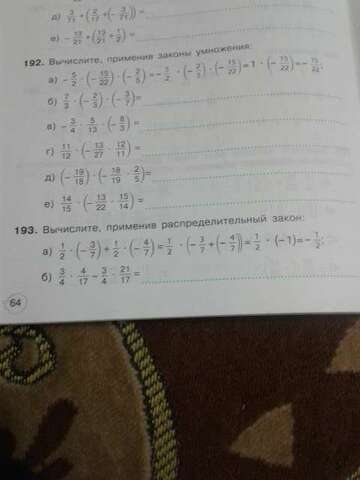 д) 3/11 + (2/17 + (- 3/11)) =
е) - 13/21 + (13/21 + 1/2) =
192. Вычислите, применив законы умножения:
а) - 5/2 · (- 15/22) · (- 2/5) = - 5/2 · (- 2/5) · (- 15/22) = 1 · (- 15/22) = - 15/22;
б) 7/3 · (- 2/5) · (- 3/7) =
в) - 3/4 · 5/13 · (- 8/3) =
г) 11/12 · (- 13/27 · 12/11) =
д) (- 19/18) · (- 18/19 · 2/5) =
е) 14/15 · (- 13/22 · 15/14) =
193. Вычислите, применив распределительный закон:
а) 1/2 · (- 3/7) + 1/2 · (- 4/7) = 1/2 · (- 3/7 + (- 4/7)) = 1/2 · (-1) = - 1/2;
б) 3/4 · 4/17 - 3/4 · 21/17 =
64